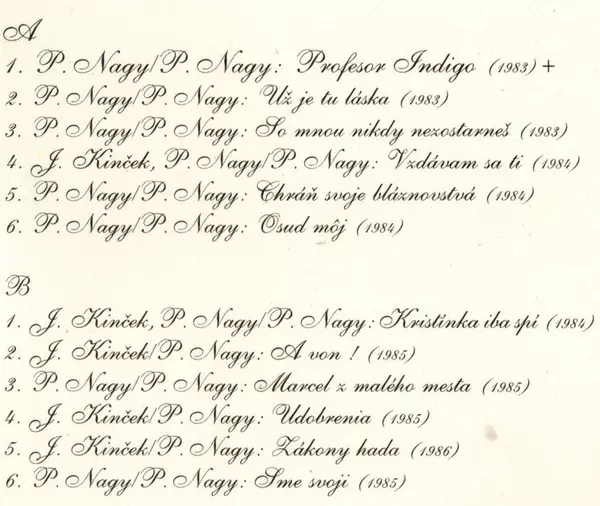 A
1. P. Nagy/P. Nagy: Profesor Indigo (1983) +
2. P. Nagy/P. Nagy: Už je tu láska (1983)
3. P. Nagy/P. Nagy: So mnou nikdy nezostarneš (1983)
4. J. Kinček, P. Nagy/P. Nagy: Vzdávam sa ti (1984)
5. P. Nagy/P. Nagy: Chráň svoje bláznovstvá (1984)
6. P. Nagy/P. Nagy: Osud môj (1984)
B
1. J. Kinček, P. Nagy/P. Nagy: Kristínka iba spí (1984)
2. J. Kinček/P. Nagy: A von ! (1985)
3. P. Nagy/P. Nagy: Marcel z malého mesta (1985)
4. J. Kinček/P. Nagy: Udobrenia (1985)
5. J. Kinček/P. Nagy: Zákony hada (1986)
6. P. Nagy/P. Nagy: Sme svoji (1985)